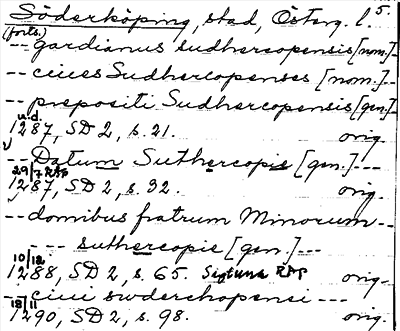 Söderköping, stad, Österg. 5.
(forts.)
-- gardianus sudhercopensis [nom.]--
-- ciues Sudhercopenses [nom.]--
-- prepositi Sudhercopensis [gen.]
u.d.
1287, SD 2, s. 21. orig.
-- Datum Suthercopie [gen.]---
29/7 RAP
1287, SD 2, s. 32. orig.
-- domibus fratrum Minorum --
--- suthercopie [gen.]---
10/12
1288, SD 2, s. 65. Sigtuna RAP orig.
-- ciui swderchopensi ---
18/11
1290, SD 2, s. 98. orig.